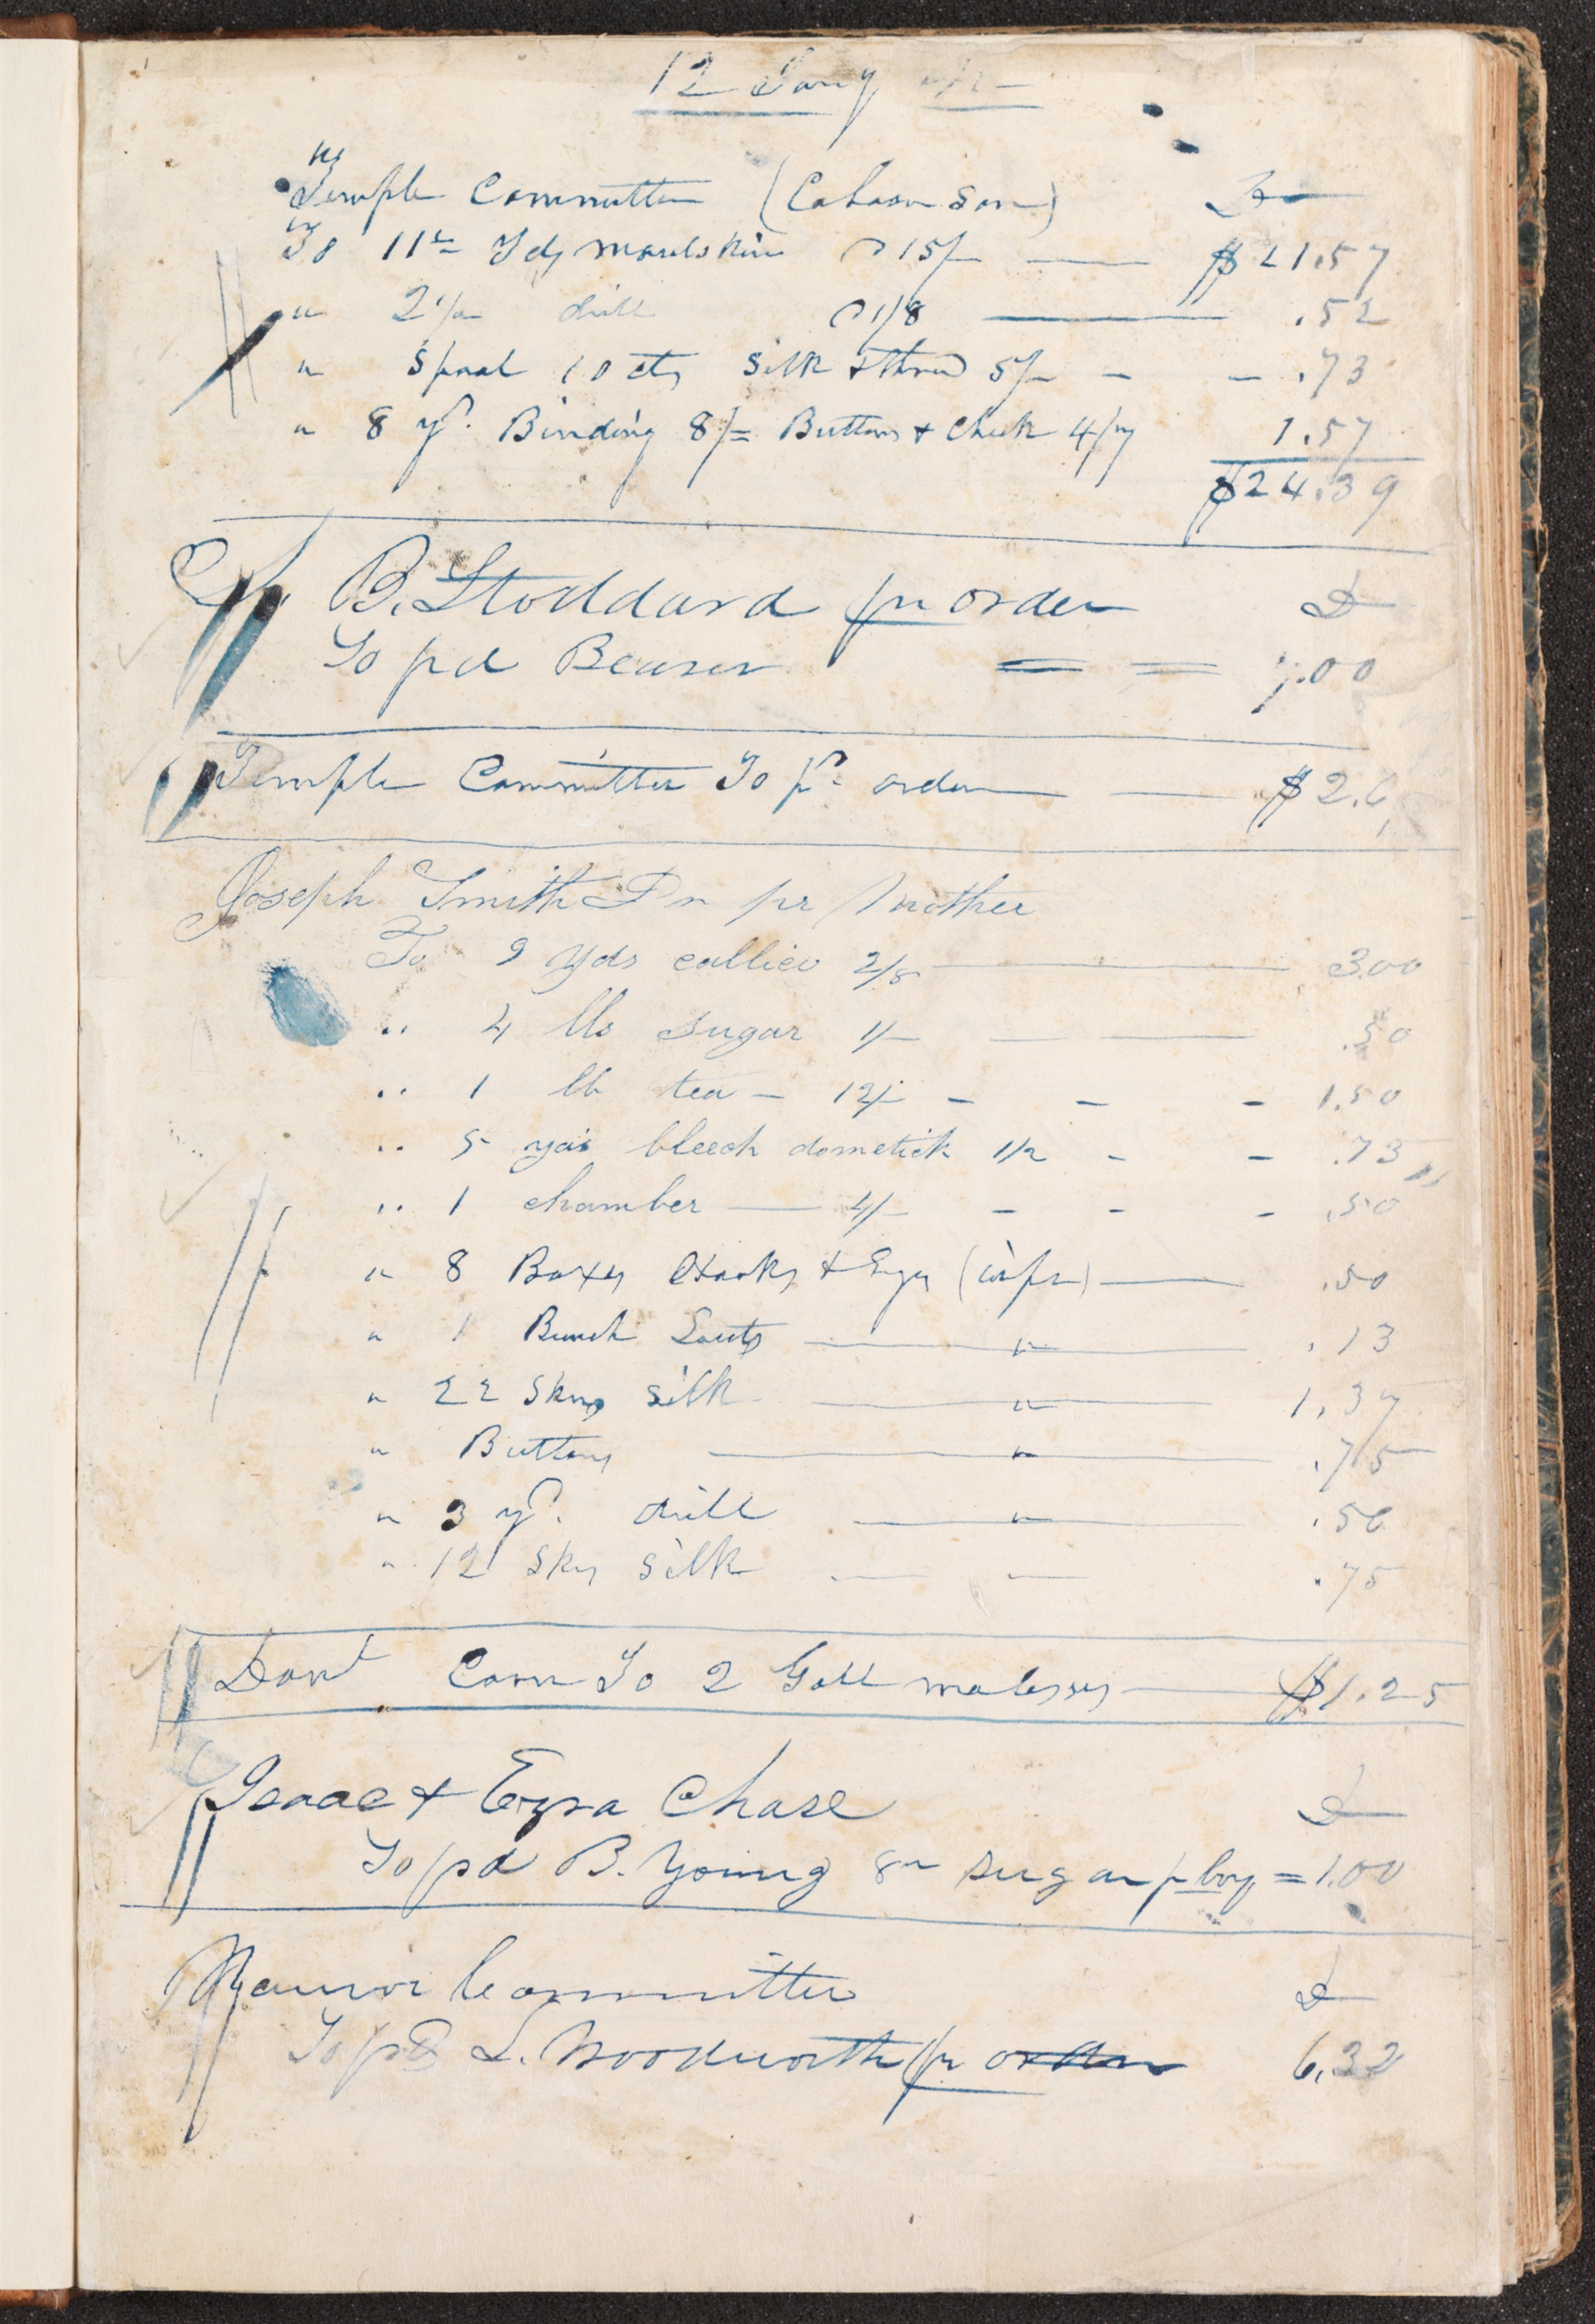 12 Jany
Temple Committee (Cahoon Son) D
To 11 Yds Moulskin @ 15/– $21.57
" drill @ 1/8 .52
" Spool 10 cts Silk & thred 5/– .73
" 8 yd. Binding 8/= Buttons & Check 4/7 1.57
$24.39
B. Stoddard pr order D
To pd Beaser 7.00
Temple Committee To pd order $2.6
Joseph Smith Dr pr Mother
To 9 Yds callico 2/8 3.00
" 4 lbs sugar 1/– .50
" 1 lb tea – 12/– 1.50
" 5 yds bleech dometick 1/2 .73
" 1 chamber 4/– .50
" 8 Boxes Hooks & Eyes (wife) .50
" 1 Bunch " .13
" 22 Skns silk " 1.37
" Buttons " .75
" 3 yd. drill " .56
" 12 Skns silk .75
Com To 2 Gall molasses $1.25
Isaac & Ezra Chase D
To pd B. Young sugar p boy = 1.00
Nauvoo Committee D
To pd L. Woodworth pr order 6.32